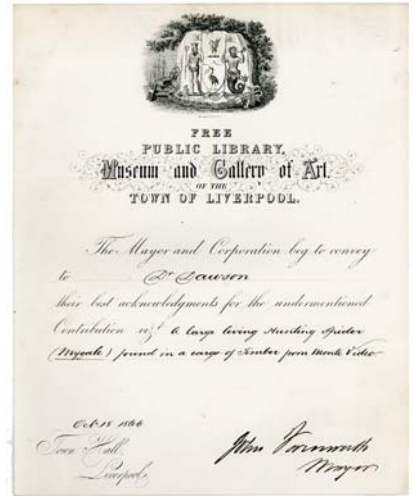 FREE
PUBLIC LIBRARY,
Museum and Gallery of Art.
OF THE
TOWN OF LIVERPOOL.
The Mayor and Corporation beg to convey
to Dr Dawson
their best acknowledgments for the undermentioned
Contribution vizt. A large living Hunting Spider
(Mygale) found in a cargo of Timber from Monte Video
Oct 18 1866
Town Hall,
Liverpool,
John Farnworth
Mayor